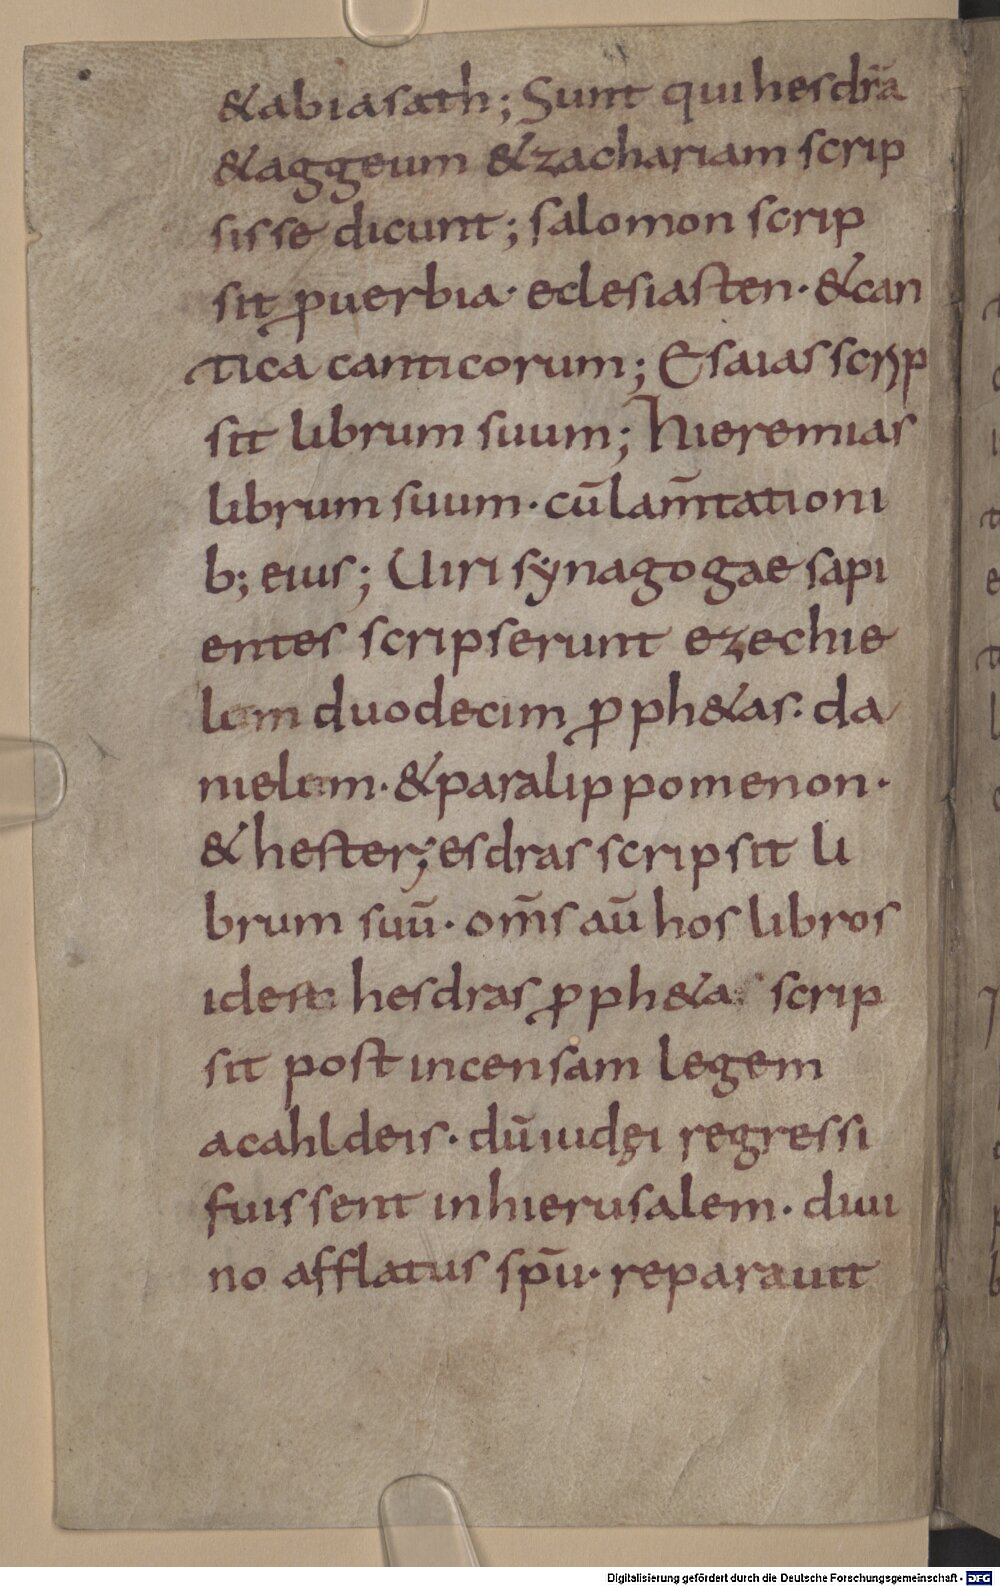 &abiasath; Sunt qui hesdrā
&aggeum &zachariam scrip
sisse dicunt; salomon scrip
sit ꝓuerbia· eclesiasten· &can
tica canticorum; Esaias scrip
sit librum suum; hieremias
librum suum· cū lam̄tationi
b; eius; Uiri synagogae sapi
entes scripserunt ezechie
lem duodecim ꝓph&as· da
nielem· &paralippomenon·
& hester; esdras scripsit li
brum suū· om̄s aū hos libros
idest hesdras ꝓph&as scrip
sit post incensam legem
acahldeis· dū iudęi regressi
fuissent inhierusalem· diui
no afflatus sp̄u· reparauit
Digitalisierung gefördert durch die Deutsche Forschungsgemeinschaft - DFG